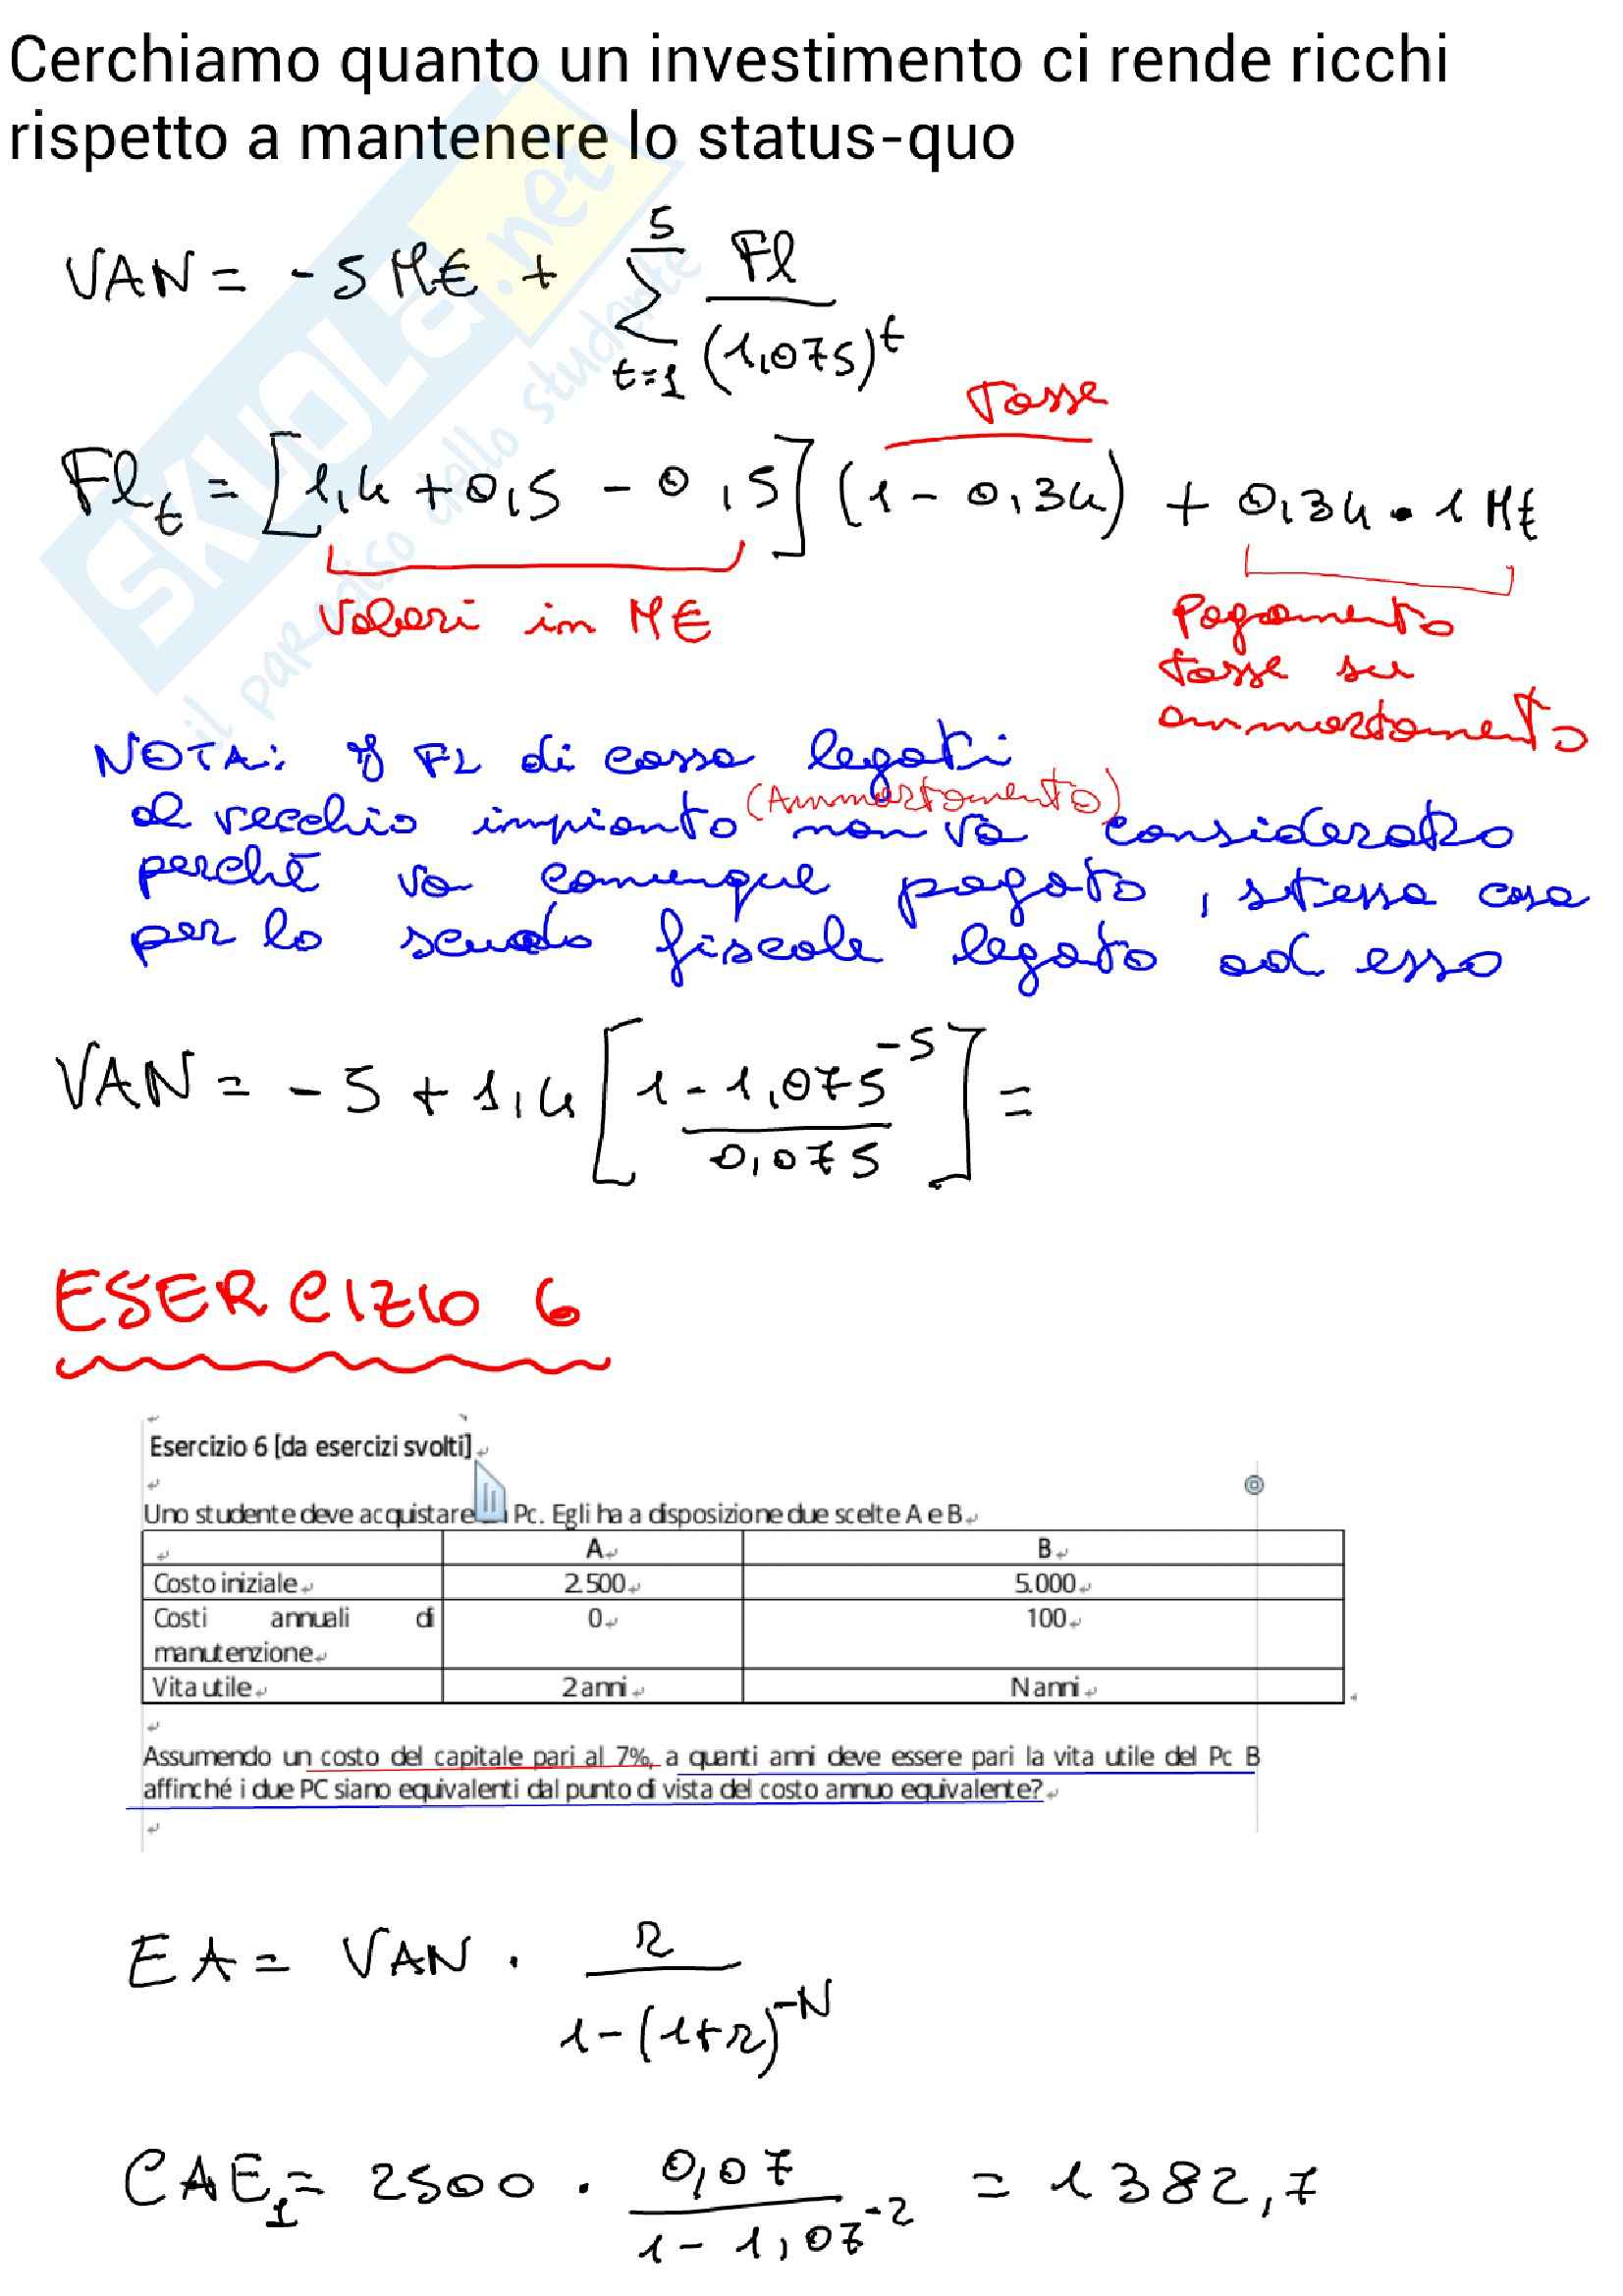 Cerchiamo quanto un investimento ci rende ricchi
rispetto a mantenere lo status-quo
SKUOLA.net
il paradiso dello studente
VAN = -5 M€ + 5 Σ t=1 Fl / (1,075)^t
Tasse
Fl_t = [1,4 + 0,5 - 0,5] (1 - 0,34) + 0,34 • 1 M€
Valori in M€
Pagamento
tasse su
ammortamento
NOTA: If FL di cassa legati
al vecchio impianto (Ammortamento) non va considerato
perchè va comunque pagato, stessa cosa
per lo scudo fiscale legato ad esso
VAN = -5 + 1,4 [1 - 1,075^-5 / 0,075] =
ESERCIZIO 6
Esercizio 6 [da esercizi svolti]
Uno studente deve acquistare Pc. Egli ha a disposizione due scelte A e B
A B
Costo iniziale 2.500 5.000
Costi annuali di manutenzione 0 100
Vita utile 2 anni N anni
Assumendo un costo del capitale pari al 7%, a quanti anni deve essere pari la vita utile del Pc B
affinché i due PC siano equivalenti dal punto di vista del costo annuo equivalente?
EA = VAN · r / 1-(1+r)^-N
CAE_1 = 2500 · 0,07 / 1 - 1,07^-2 = 1382,7